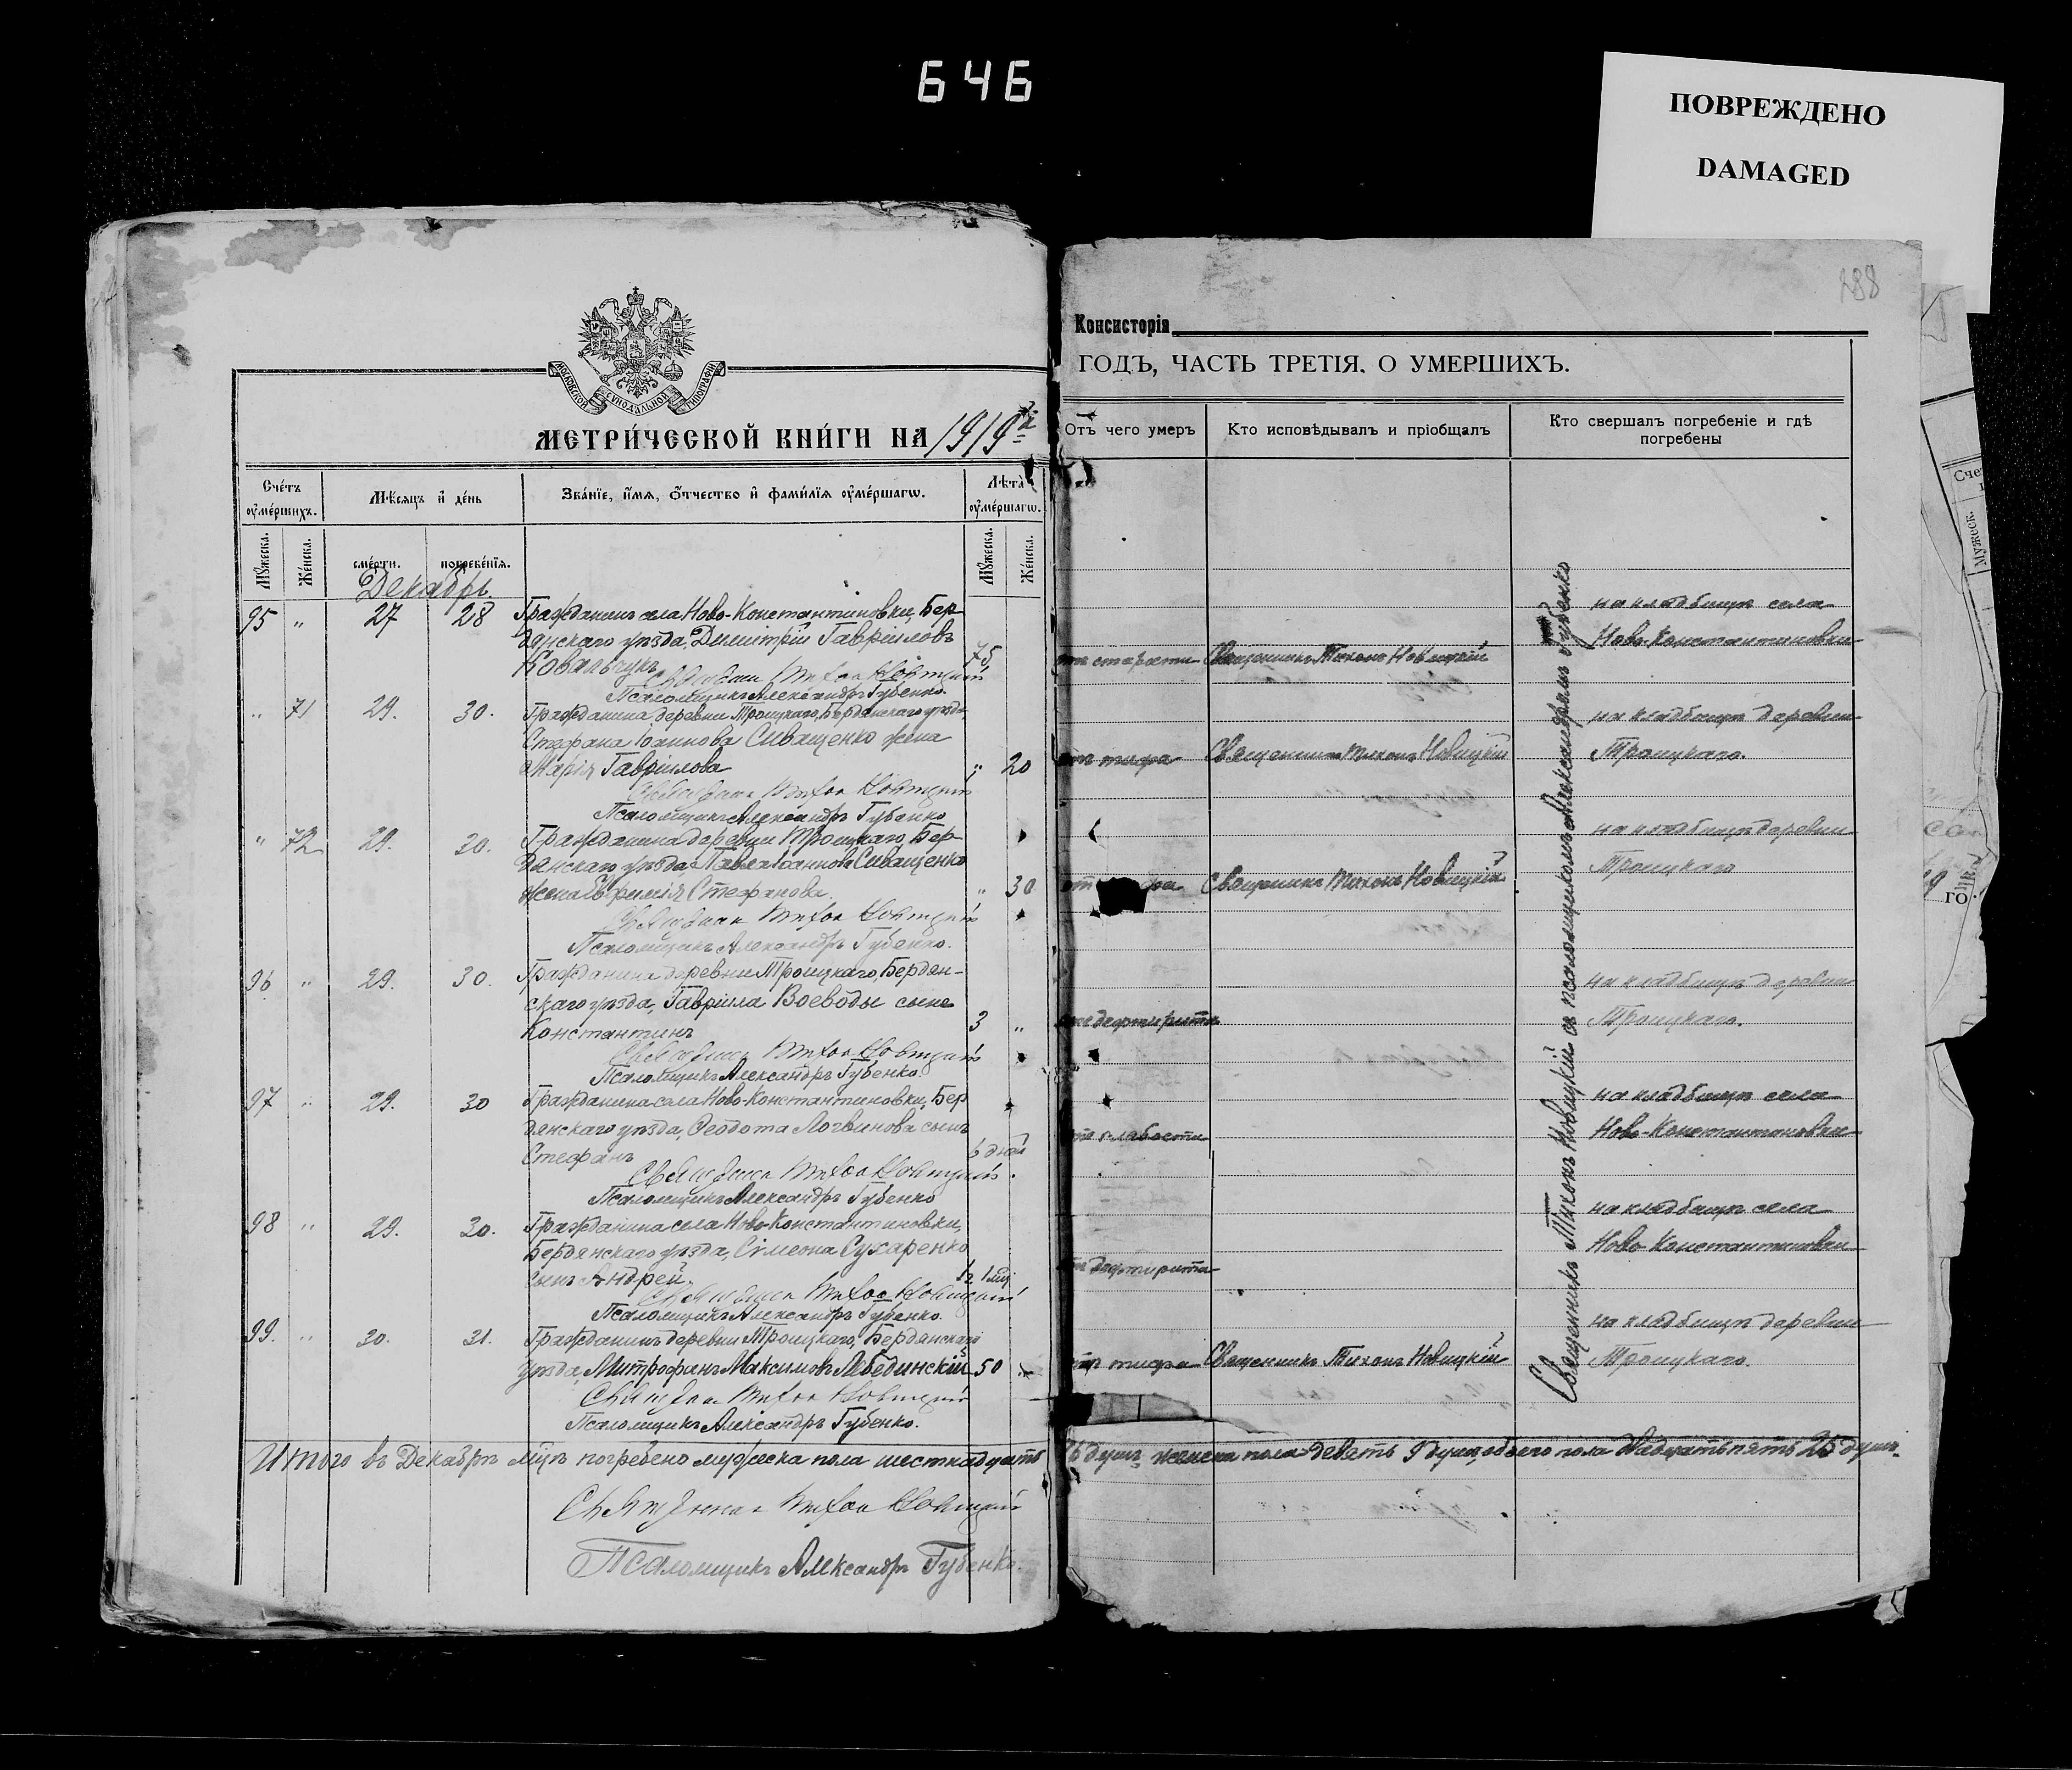 646
ПОВРЕЖДЕНО
DAMAGED
188
МОСКОВСКОЙ СѴНОДАЛЬНОЙ ТИПОГРАФІИ
МЕТРИ́ЧЕСКОЙ КНИ́ГИ НА 1919
Сче́тъ ѹ҆ме́ршихъ.
Мѣ́сяцъ и҆ де́нь
Зва́нїе, и҆́мѧ, ѻ҆́тчество и҆ фами́лїѧ ѹ҆ме́ршагѡ.
Лѣ́та ѹ҆ме́ршагѡ.
Мꙋ́жеска.
Же́нска.
сме́рти.
погребе́нїѧ.
Мꙋ́жеска.
Же́нска.
Декабрь.
95 " 27 28 Гражданинъ села Ново-Константиновки, Бер-
дянскаго уѣзда, Димитрій Гавріиловъ
Ковальчукъ 75
Священникъ Тихонъ Новицкій
Псаломщикъ Александръ Губенко.
" 71 29. 30. Гражданина деревни Троицкаго, Бердянскаго уѣзда,
Стефана Іоаннова Сиващенко жена
Марія Гавріилова " 20
Священникъ Тихонъ Новицкій
Псаломщикъ Александръ Губенко
" 72 29. 30. Гражданина деревни Троицкаго, Бер-
дянскаго уѣзда, Павла Іоаннова Сиващенко
жена Стефанова " 30
Священникъ Тихонъ Новицкій
Псаломщикъ Александръ Губенко.
96 " 29. 30. Гражданина деревни Троицкаго, Бердян-
скаго уѣзда, Гавріила Воеводы сынъ
Константинъ 3 "
Священникъ Тихонъ Новицкій
Псаломщикъ Александръ Губенко.
97 " 29. 30 Гражданина села Ново-Константиновки, Бер
дянскаго уѣзда, Ѳеодота Логвинова сынъ
Стефанъ 6 дней
Священникъ Тихонъ Новицкій.
Псаломщикъ Александръ Губенко
98 " 29. 30. Гражданина села Ново-Константиновки,
Бердянскаго уѣзда, Сѵмеона Сухаренко
сынъ Андрей.
Священникъ Тихонъ Новицкій
Псаломщикъ Александръ Губенко.
99. " 30. 31. Гражданинъ деревни Троицкаго, Бердянскаго
уѣзда, Митрофанъ Максимовъ Лебединскій 50 "
Священникъ Тихонъ Новицкій
Псаломщикъ Александръ Губенко.
Итого въ Декабрѣ мцѣ погребено мужеска пола шестнадцать
Священникъ Тихонъ Новицкій
Псаломщикъ Александръ Губенко.
Консисторія
ГОДЪ, ЧАСТЬ ТРЕТІЯ. О УМЕРШИХЪ.
Отъ чего умеръ
Кто исповѣдывалъ и пріобщалъ
Кто свершалъ погребеніе и гдѣ
погребены
Священникъ Тихонъ Новицкій съ псаломщикомъ Александромъ Губенко
на кладбищѣ села
Ново-Константиновки
отъ старости Священникъ Тихонъ Новицкій
на кладбищѣ деревни
отъ тифа Священникъ Тихонъ Новицкій Троицкаго.
на кладбищѣ деревни
Троицкаго
Священникъ Тихонъ Новицкій
на кладбищѣ деревни
дефтерита Троицкаго.
на кладбищѣ села
отъ слабости Ново-Константиновки
на кладбищѣ села
Ново-Константиновки
дефтерита
на кладбищѣ деревни
отъ тифа Священникъ Тихонъ Новицкій Троицкаго.
16 душъ, женска пола девять 9 душъ, обоего пола двадцать пять 25 душъ.
Мужеск.
го